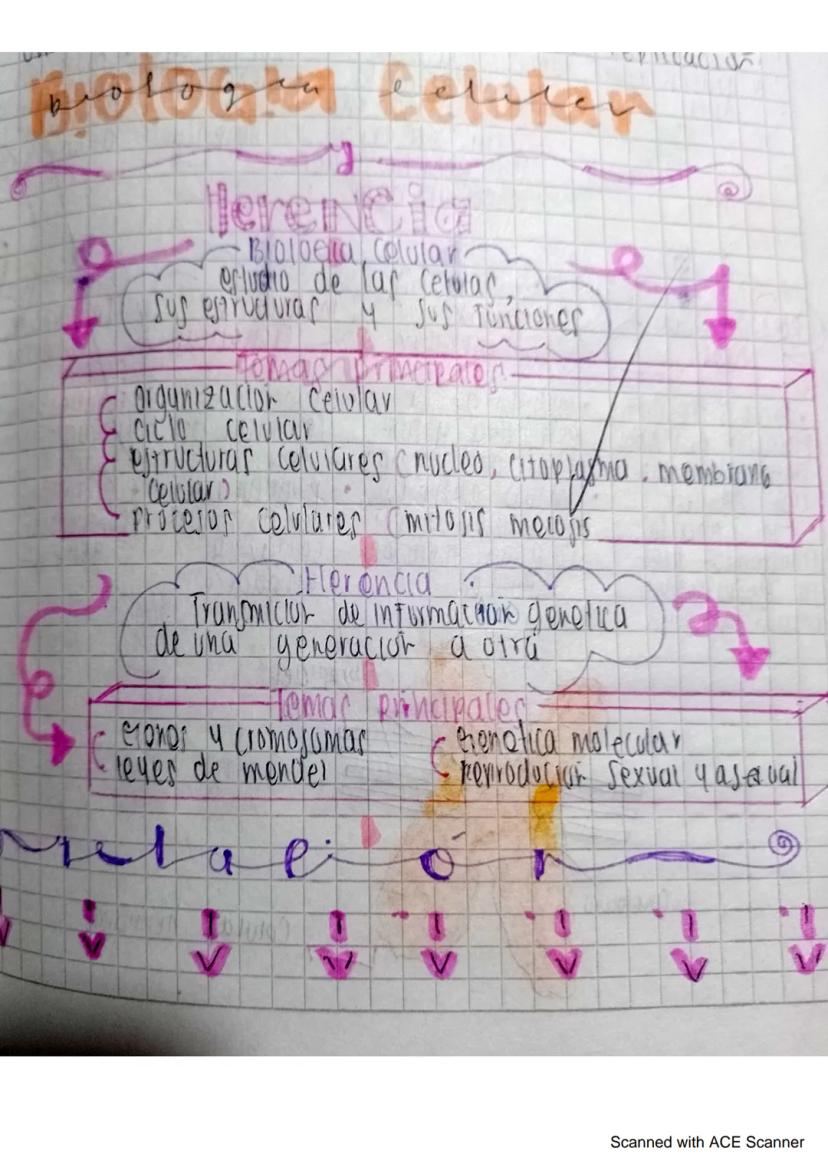 replicación
Biología Celular
y
Herencia
Biología Celular
estudio de las celulas,
sus estructuras y sus funciones
Temas principales
organización celular
ciclo celular
estructuras celulares (nucleo, citoplasma, membrana
celular)
procesos celulares (mitosis meiosis
Herencia
de información genetica
de una generación a otra
Temas principales
genes y cromosomas
leyes de mendel
genetica molecular
reproducion sexual y asexual
relación
Scanned with ACE Scanner